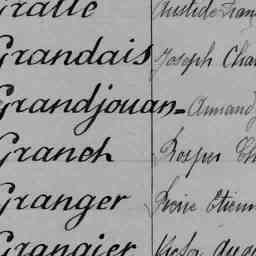 Gratte Aristide Fran
Grandais Joseph Cha
Grandjouan - Armand
Granch Prosper Ch
Granger Pierre Etienn
Grangier Victor Augu